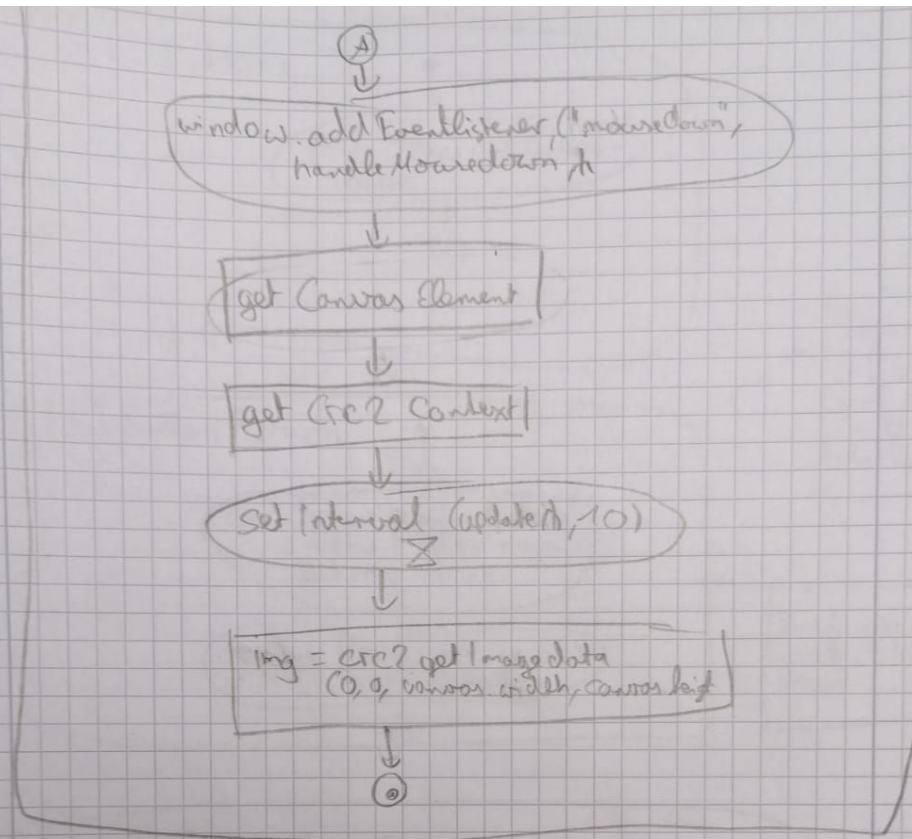 A
window.addEventlistener("mousedown",
handleMousedown
get Canvas Element
get Crc2 Context
set Interval (update, 10)
img = crc2 getImagedata
(0, 0, canvas.width, canvas